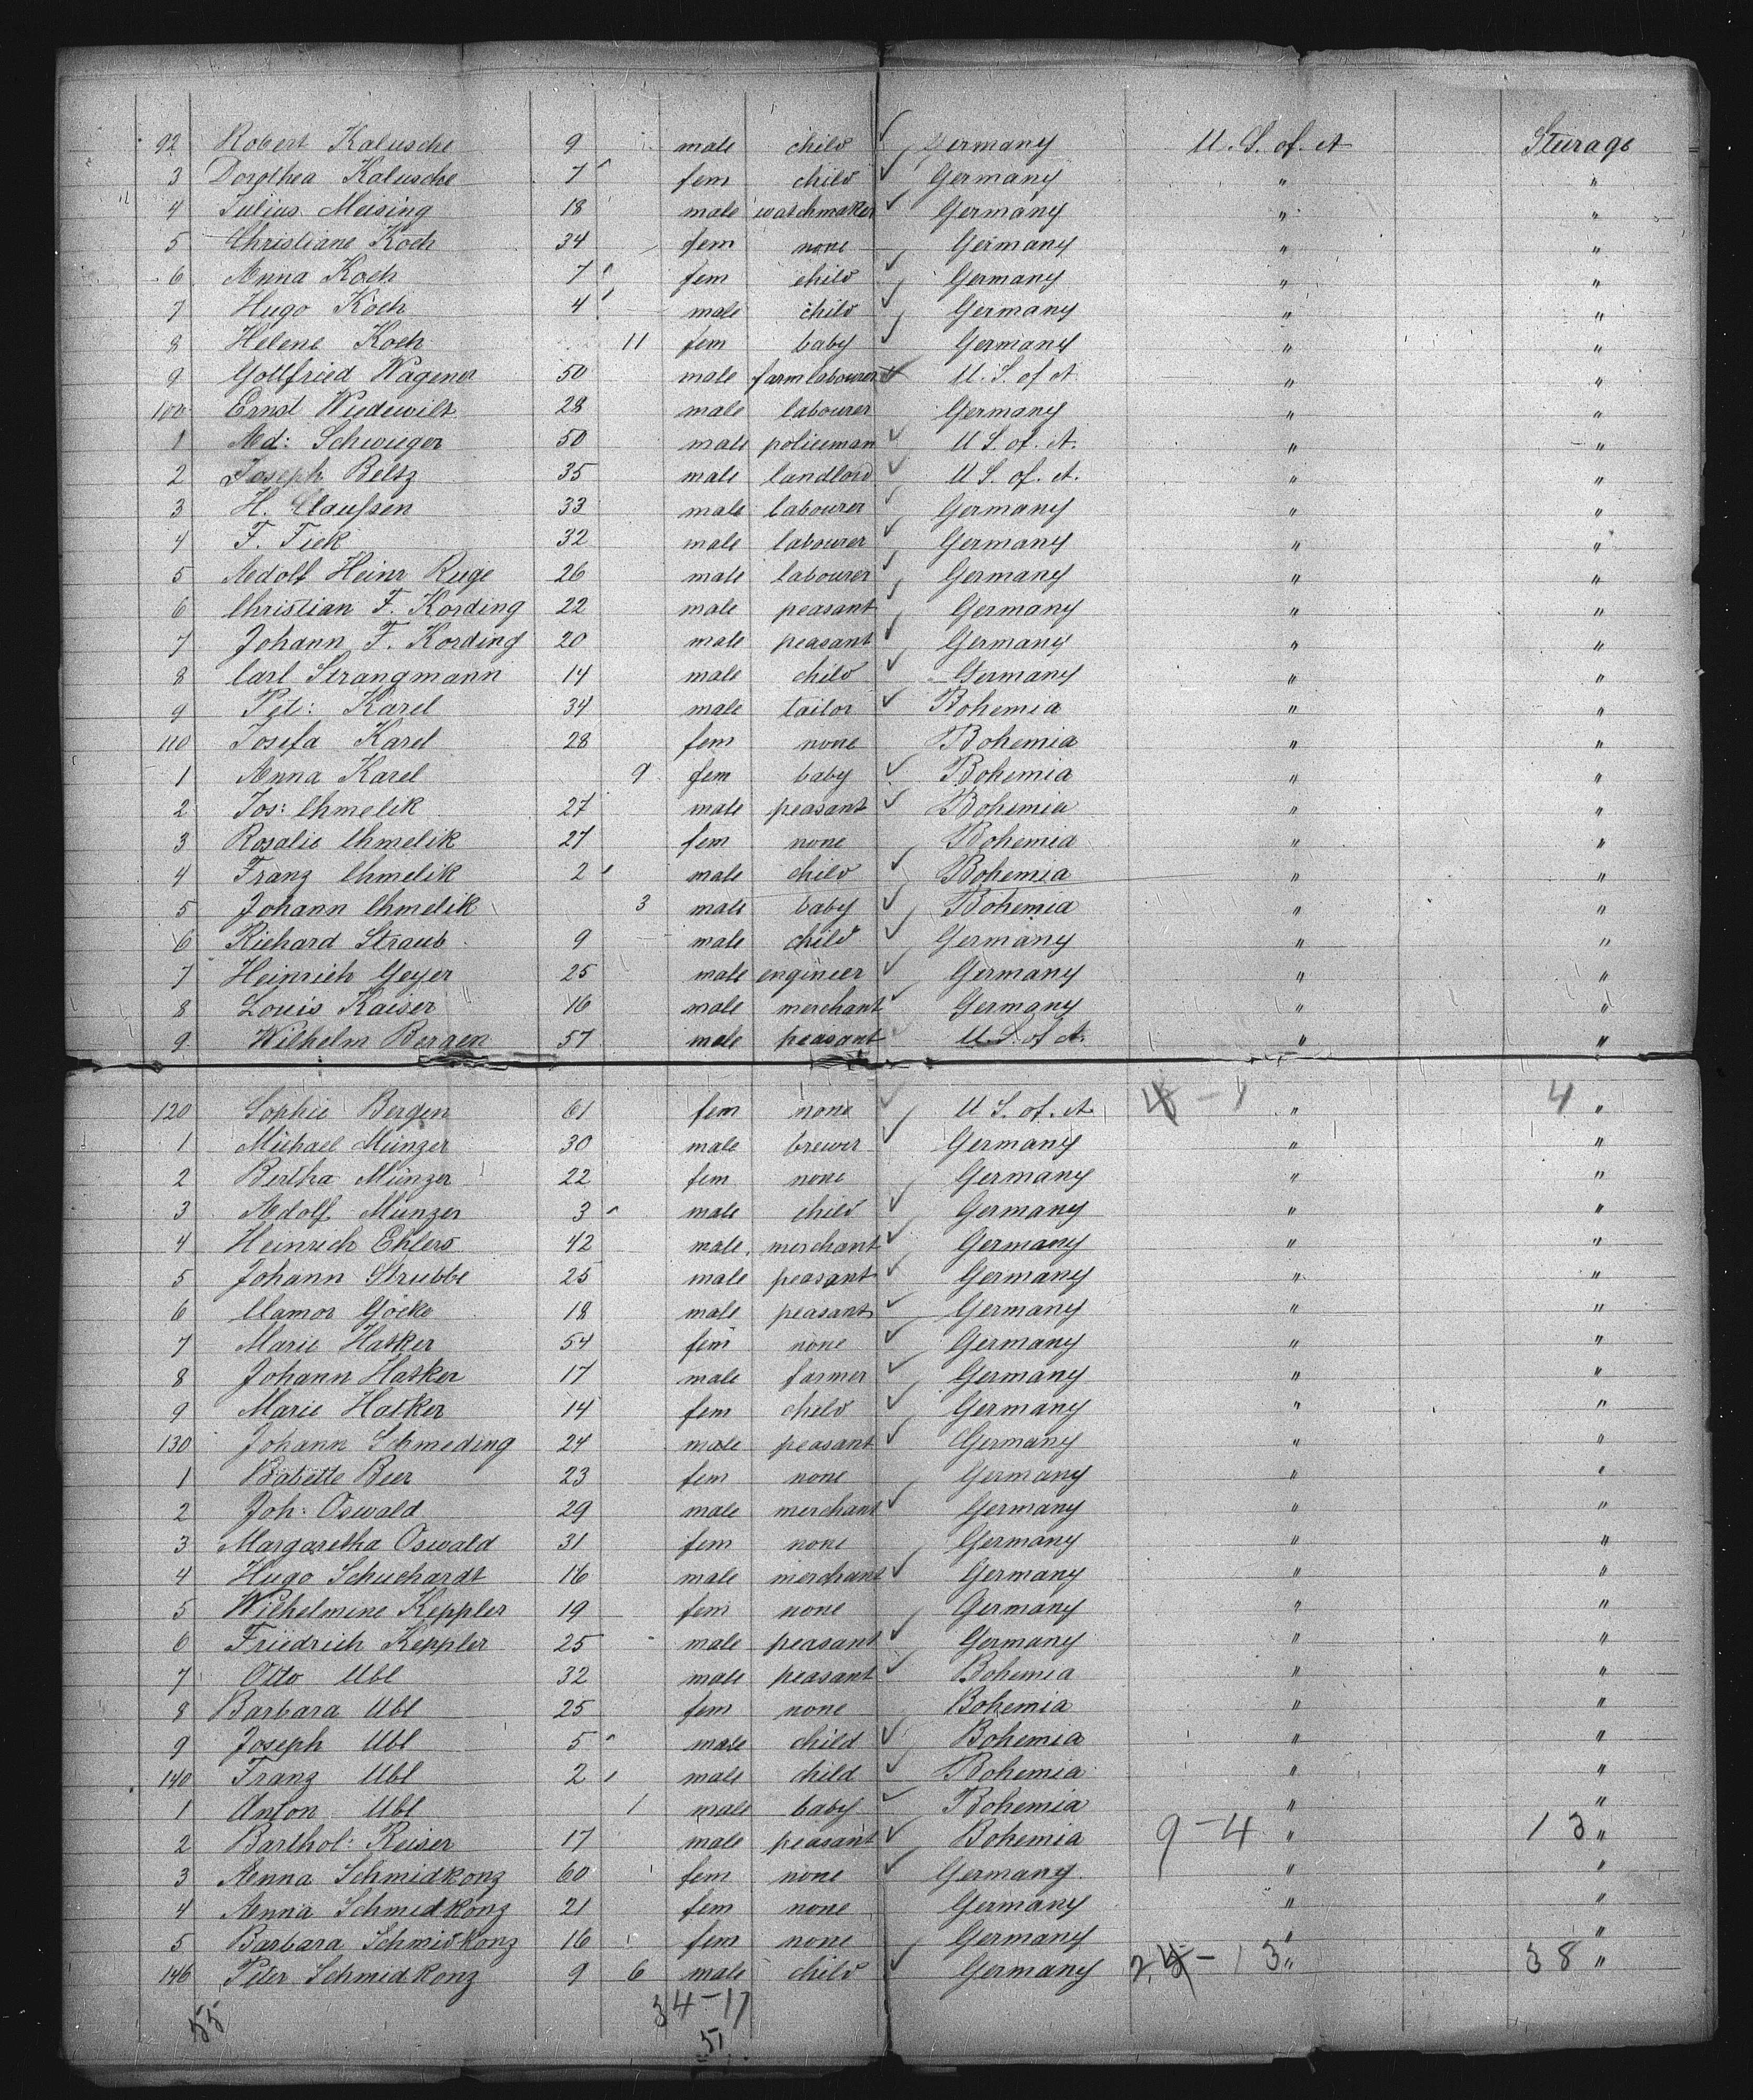 92 Robert Kalusche 9 male child Germany U. S. of. A Sturage
3 Dorothea Kalusche 7 fem child Germany " "
4 Julius Meising 18 male watchmaker Germany " "
5 Christiane Koch 34 fem none Germany " "
6 Anna Koch 7 fem child Germany " "
7 Hugo Koch 4 male child Germany " "
8 Helene Koch 11 fem baby Germany " "
9 Gottfried Wagener 50 male farm labourer U. S. of A " "
100 Ernst Wiedewilt 28 male labourer Germany " "
1 Ad: Schwieger 50 male policeman U S. of. A. " "
2 Joseph Beltz 35 male landlord U S. of. A. " "
3 H. Claußen 33 male labourer Germany " "
4 F. Fick 32 male labourer Germany " "
5 Adolf Heinr Ruge 26 male labourer Germany " "
6 Christian F. Kording 22 male peasant Germany " "
7 Johann F. Kording 20 male peasant Germany " "
8 Carl Strangmann 14 male child Germany " "
9 Pet: Karel 34 male tailor Bohemia " "
110 Josefa Karel 28 fem none Bohemia " "
1 Anna Karel 9 fem baby Bohemia " "
2 Jos: Chmelik 27 male peasant Bohemia " "
3 Rosalie Chmelik 27 fem none Bohemia " "
4 Franz Chmelik 2 male child Bohemia " "
5 Johann Chmelik 3 male baby Bohemia " "
6 Richard Straub 9 male child Germany " "
7 Heinrich Geyer 25 male engineer Germany " "
8 Louis Kaiser 16 male merchant Germany " "
9 Wilhelm Bergen 57 male peasant U. S. of A. " "
120 Sophie Bergen 61 fem none U S. of. A 4 - 1 " 4 "
1 Michael Münzer 30 male brewer Germany " "
2 Bertha Münzer 22 fem none Germany " "
3 Adolf Münzer 3 male child Germany " "
4 Heinrich Ehlers 42 male merchant Germany " "
5 Johann Strubbe 25 male peasant Germany " "
6 Clamor Göcke 18 male peasant Germany " "
7 Marie Hasker 54 fem none Germany " "
8 Johann Hasker 17 male farmer Germany " "
9 Marie Hasker 14 fem child Germany " "
130 Johann Schmeding 24 male peasant Germany " "
1 Babette Beer 23 fem none Germany " "
2 Joh: Oswald 29 male merchant Germany " "
3 Margaretha Oswald 31 fem none Germany " "
4 Hugo Schuchardt 16 male merchant Germany " "
5 Wilhelmine Keppler 19 fem none Germany " "
6 Friedrich Keppler 25 male peasant Germany " "
7 Otto Ubl 32 male peasant Bohemia " "
8 Barbara Ubl 25 fem none Bohemia " "
9 Joseph Ubl 5 male child Bohemia " "
140 Franz Ubl 2 male child Bohemia " "
1 Anton Ubl 1 male baby Bohemia " "
2 Barthol: Reiser 17 male peasant Bohemia 9 - 4 " 13 "
3 Anna Schmidkonz 60 fem none Germany " "
4 Anna Schmidkonz 21 fem none Germany " "
5 Barbara Schmidkonz 16 fem none Germany " "
146 Peter Schmidkonz 9 6 male child Germany - 13 " 38 "
55 34 - 17
51